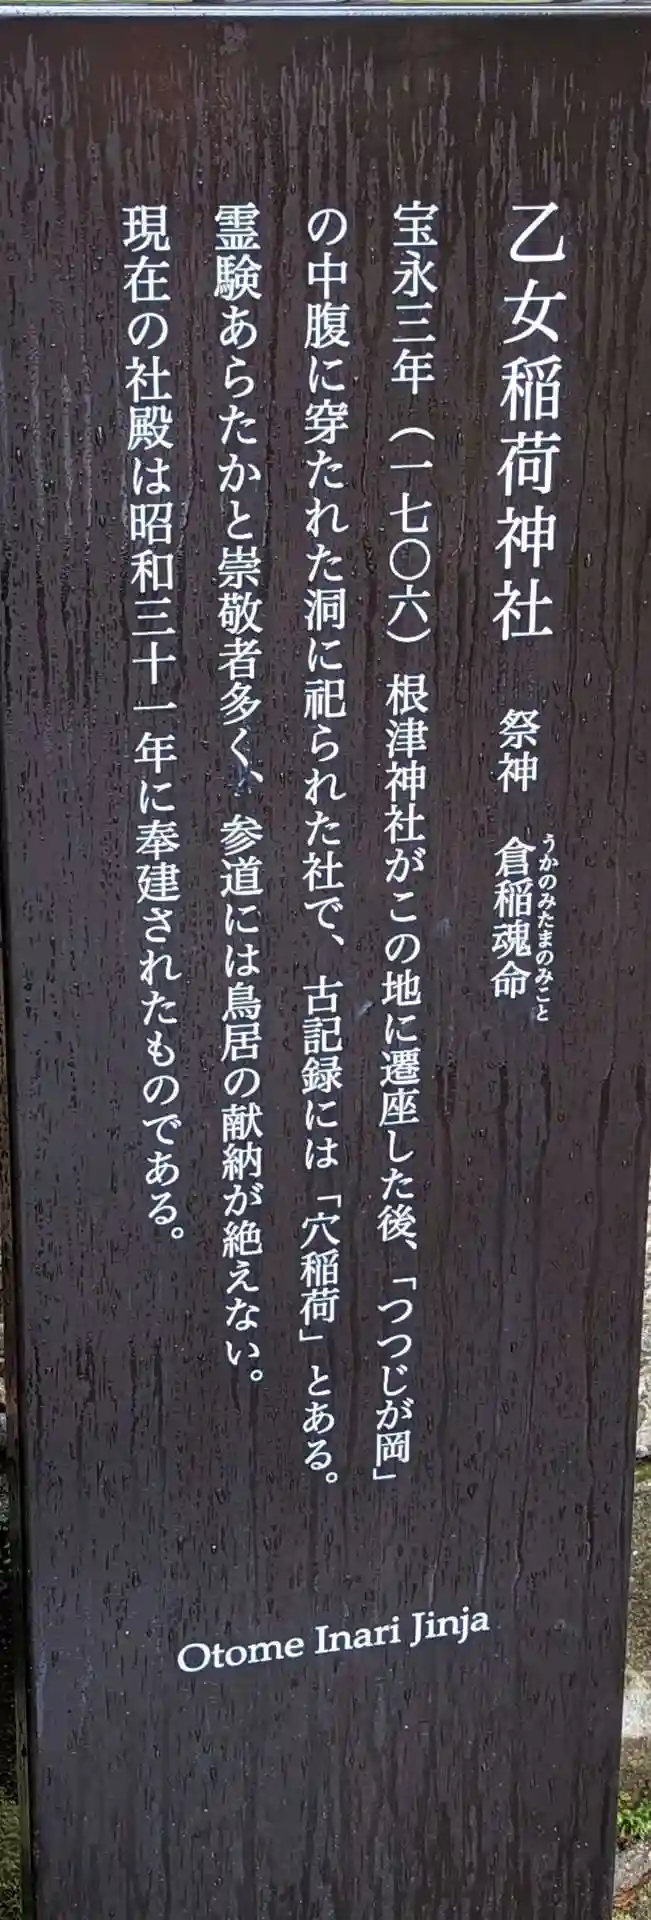 乙女稲荷神社　祭神　倉稲魂命
うかのみたまのみこと
宝永三年（一七〇六）根津神社がこの地に遷座した後、「つつじが岡」
の中腹に穿たれた洞に祀られた社で、古記録には「穴稲荷」とある。
霊験あらたかと崇敬者多く、参道には鳥居の献納が絶えない。
現在の社殿は昭和三十一年に奉建されたものである。
Otome Inari Jinja